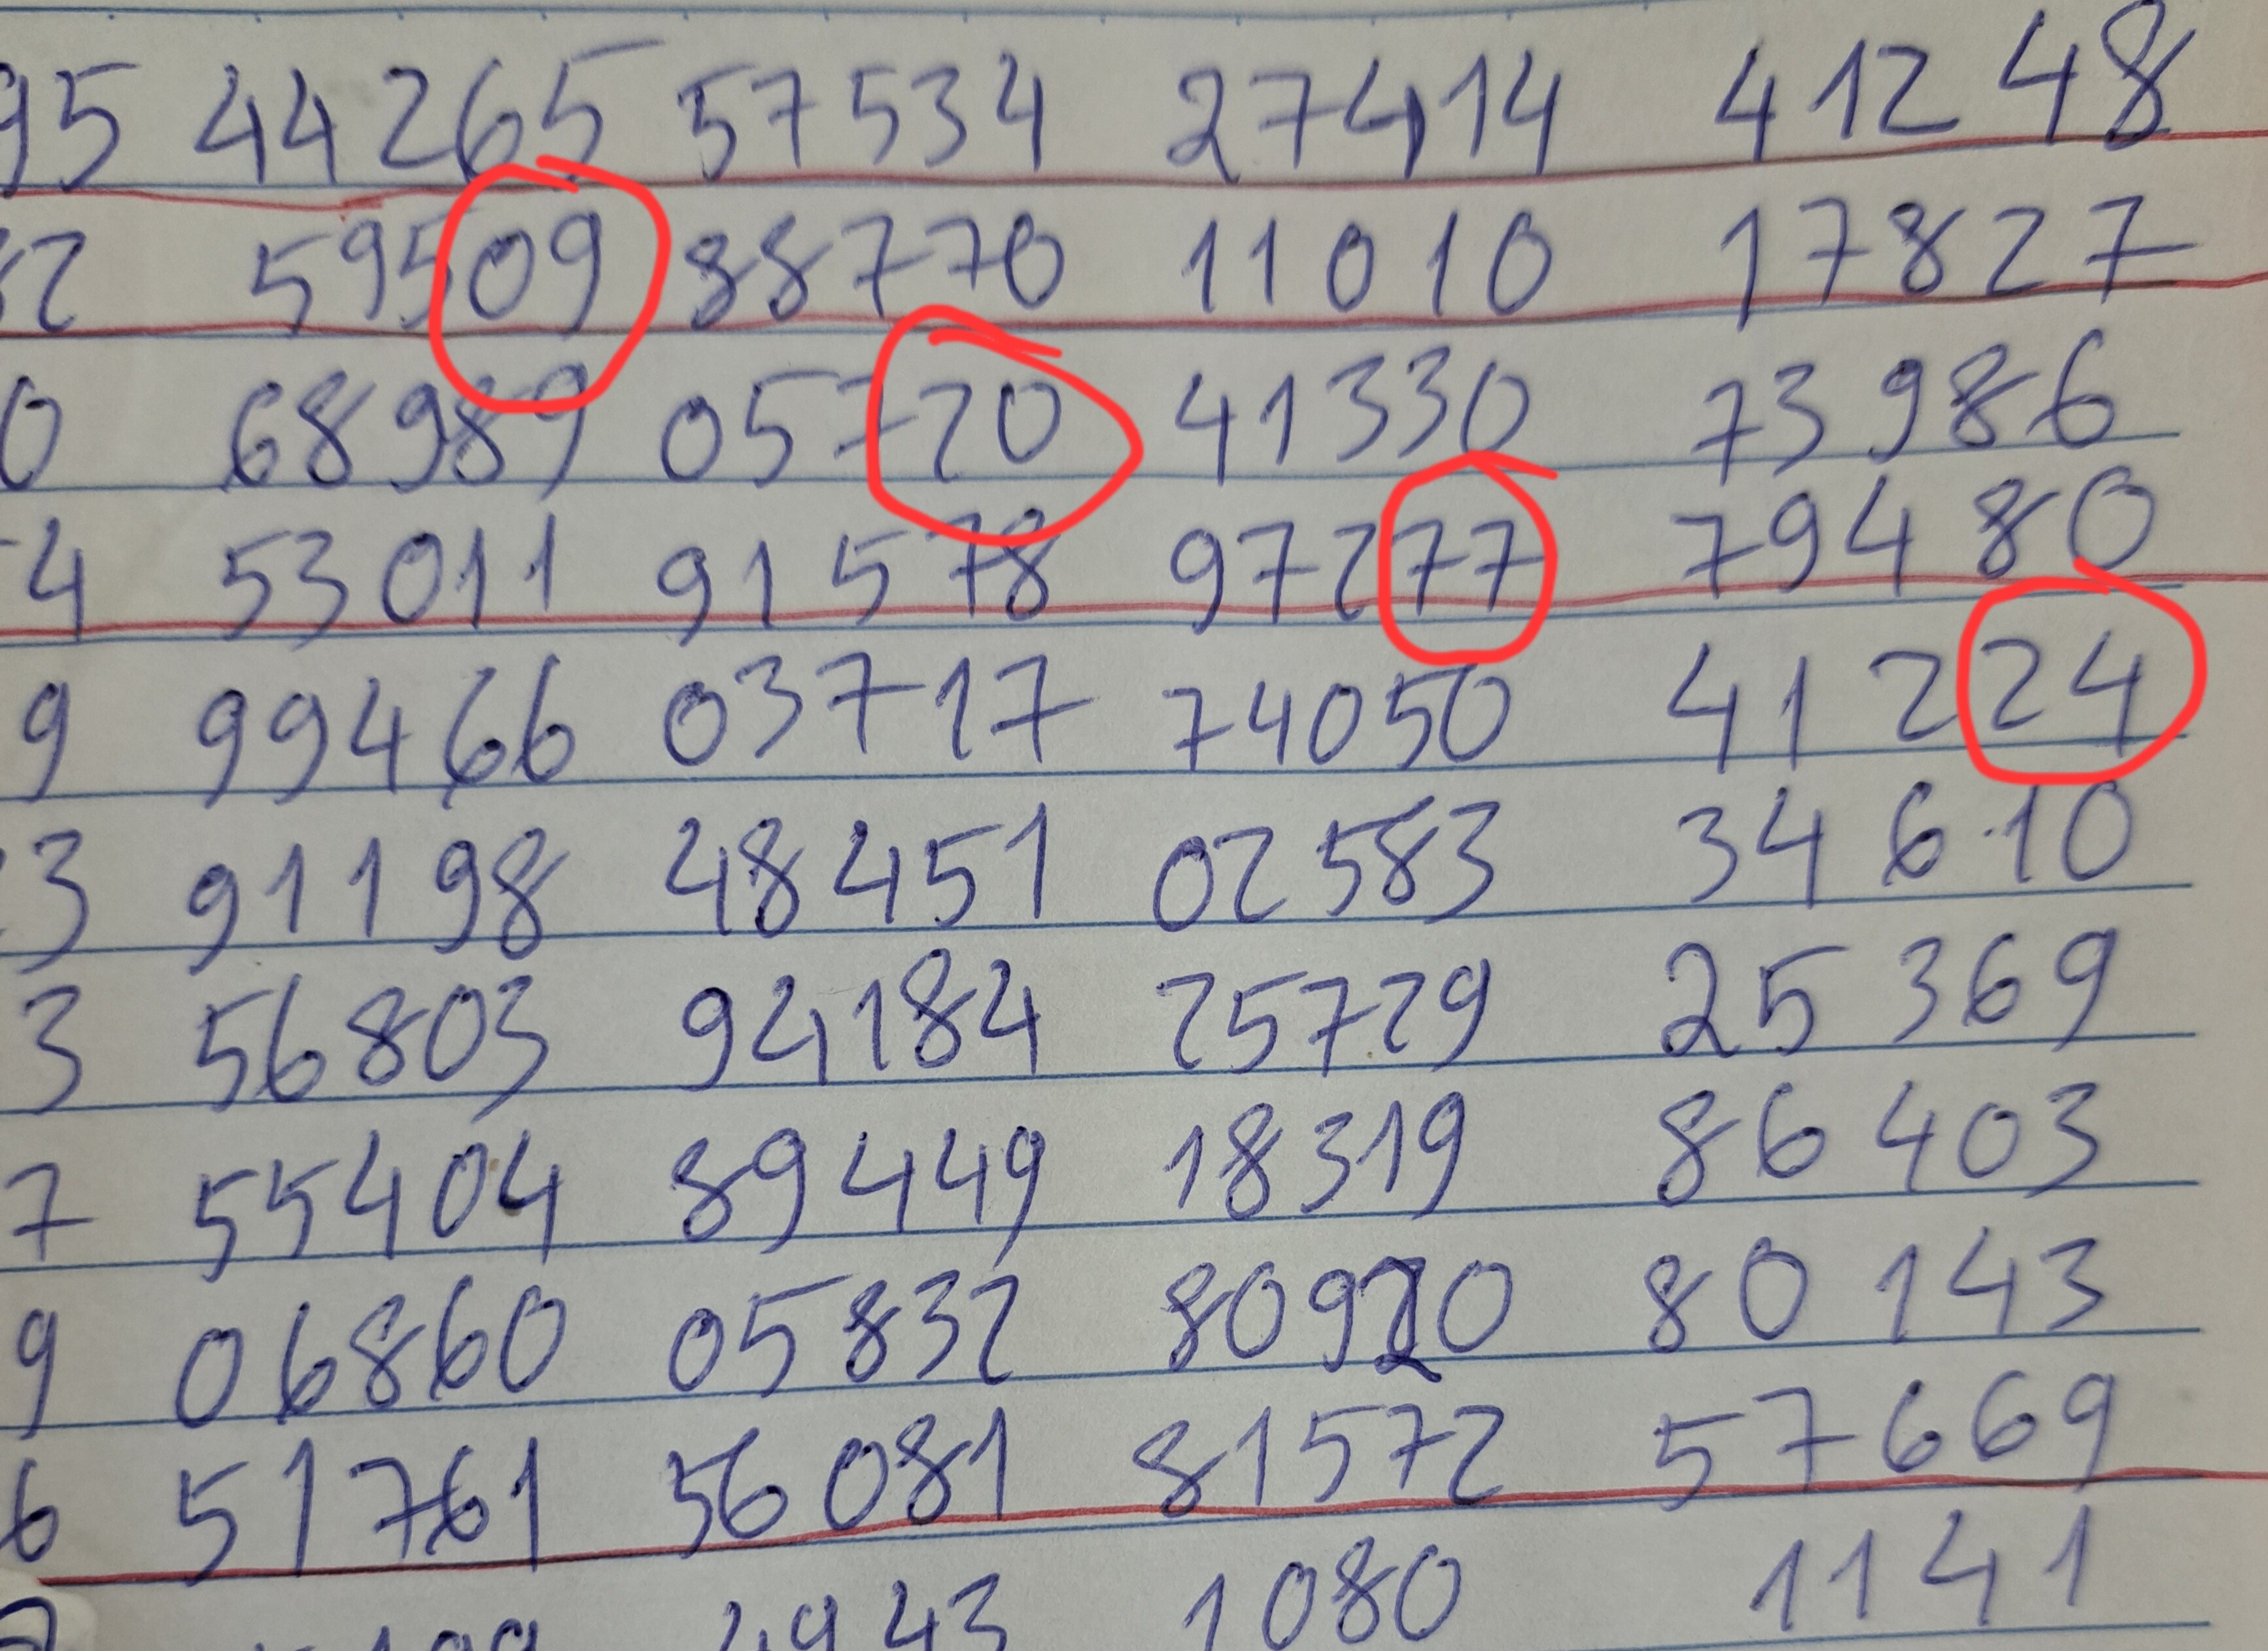 95 44265 57534 27414 41248
82 59509 88770 11010 17827
0 68989 05720 41330 73986
4 53011 91578 97277 79480
9 99466 03717 74050 41224
3 91198 48451 02583 34610
3 56803 94184 25729 25369
7 55404 89449 18319 86403
9 06860 05832 80920 80143
6 51761 56081 81572 57669
4943 1080 1141